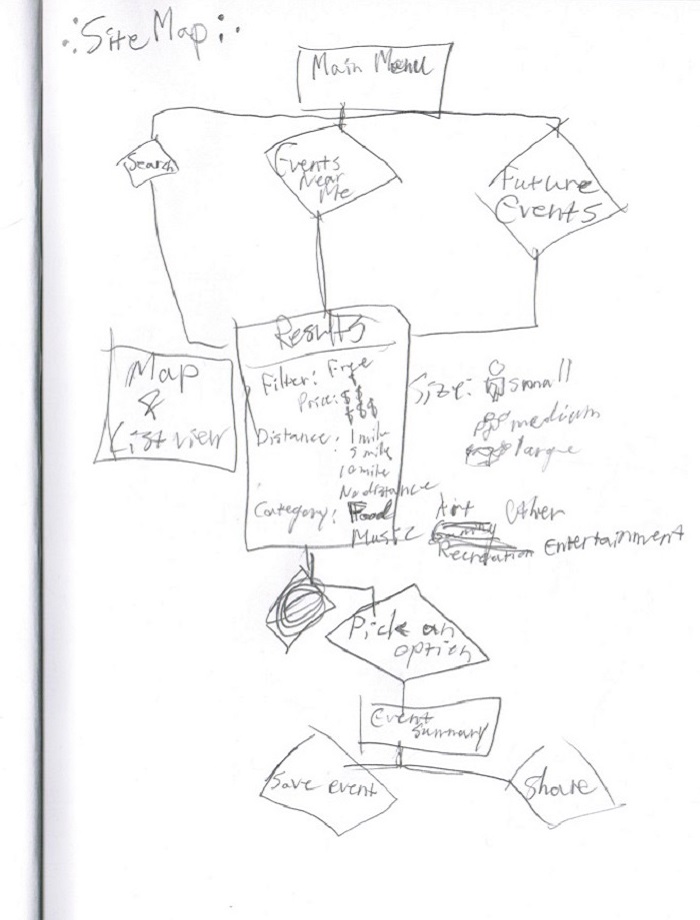 Site Map
Main Menu
Search
Events
Near
Me
Future
Events
Results
Map
&
List view
Filter: Free
Price: $$
$$$
Distance: 1 mile
5 mile
10 mile
No distance
Category: Food
Music
Size: small
medium
large
Art Other
Recreation Entertainment
Pick an
option
Event
Summary
Save event
Share